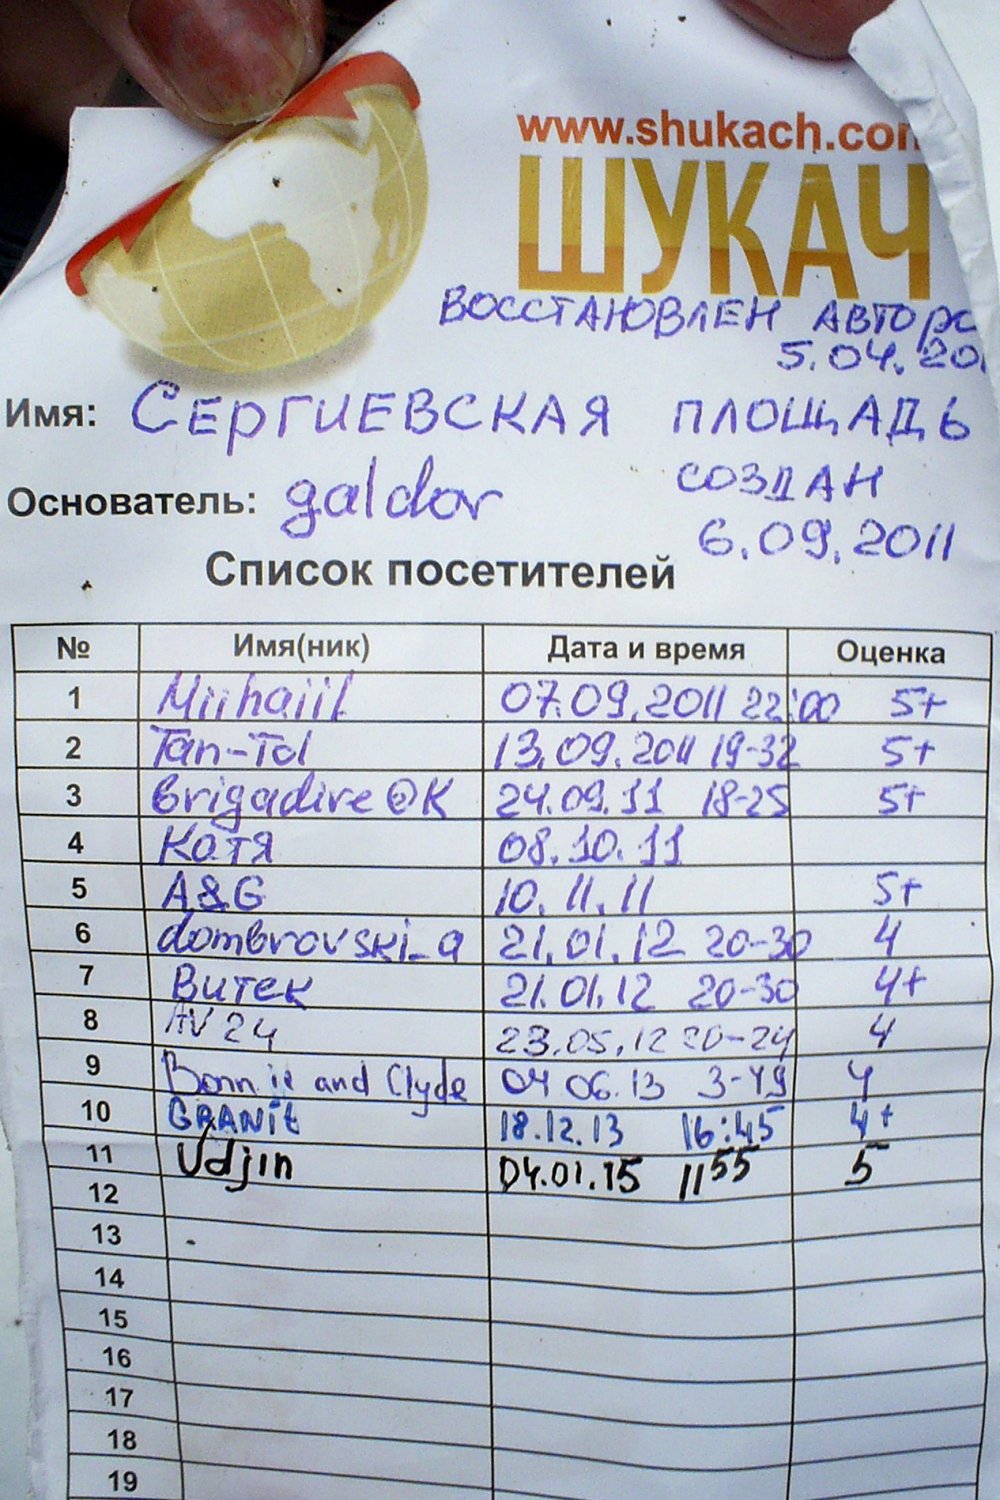 www.shukach.com
ШУКАЧ
ВОССТАНОВЛЕН
5.04.20
Имя: СЕРГИЕВСКАЯ ПЛОЩАДЬ
СОЗДАН
Основатель: galdor
6.09.2011
Список посетителей
№ Имя(ник) Дата и время Оценка
1 Miihaiil 07.09.2011 22:00 5+
2 Tan-Tol 13.09.2011 19-32 5+
3 Brigadire@K 24.09.11 18-25 5+
4 Катя 08.10.11
5 A&G 10.11.11 5+
6 dombrovski_a 21.01.12 20-30 4
7 Витек 21.01.12 20-30 4+
8 AV24 23.05.12 20-24 4
9 Bonnie and Clyde 04 06.13 3-49 4
10 GRANIt 18.12.13 16:45 4+
11 Udjin 04.01.15 11 55 5
12
13
14
15
16
17
18
19